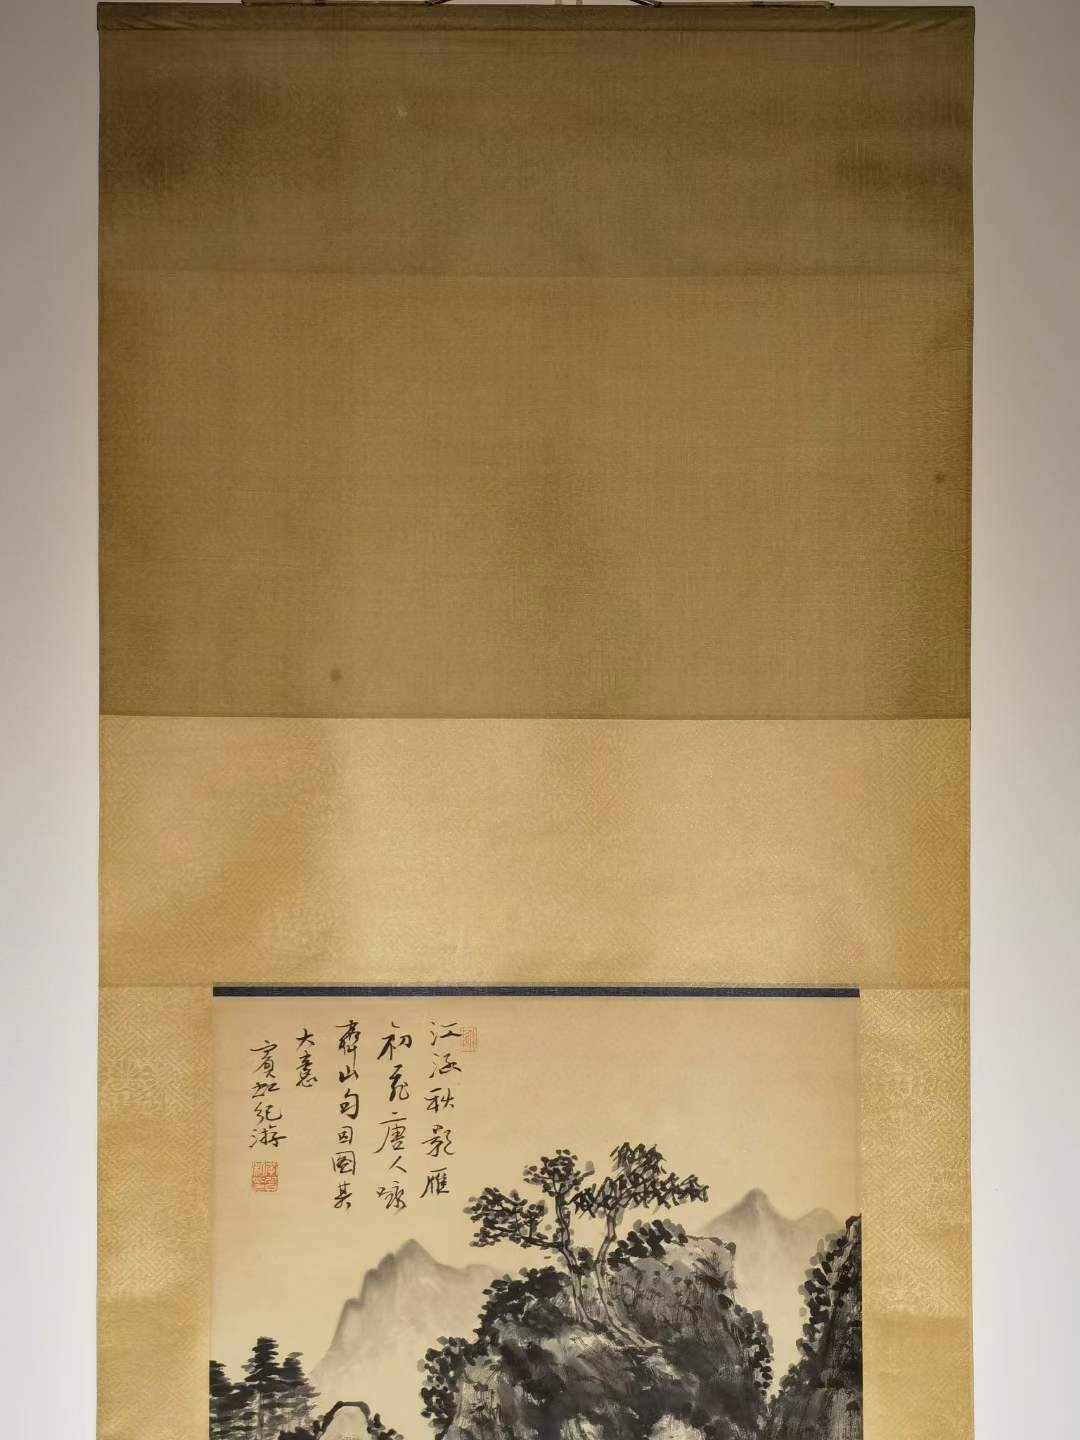 江涵秋影雁
初飛唐人咏
齊山句因圖其
大意
賓虹紀游